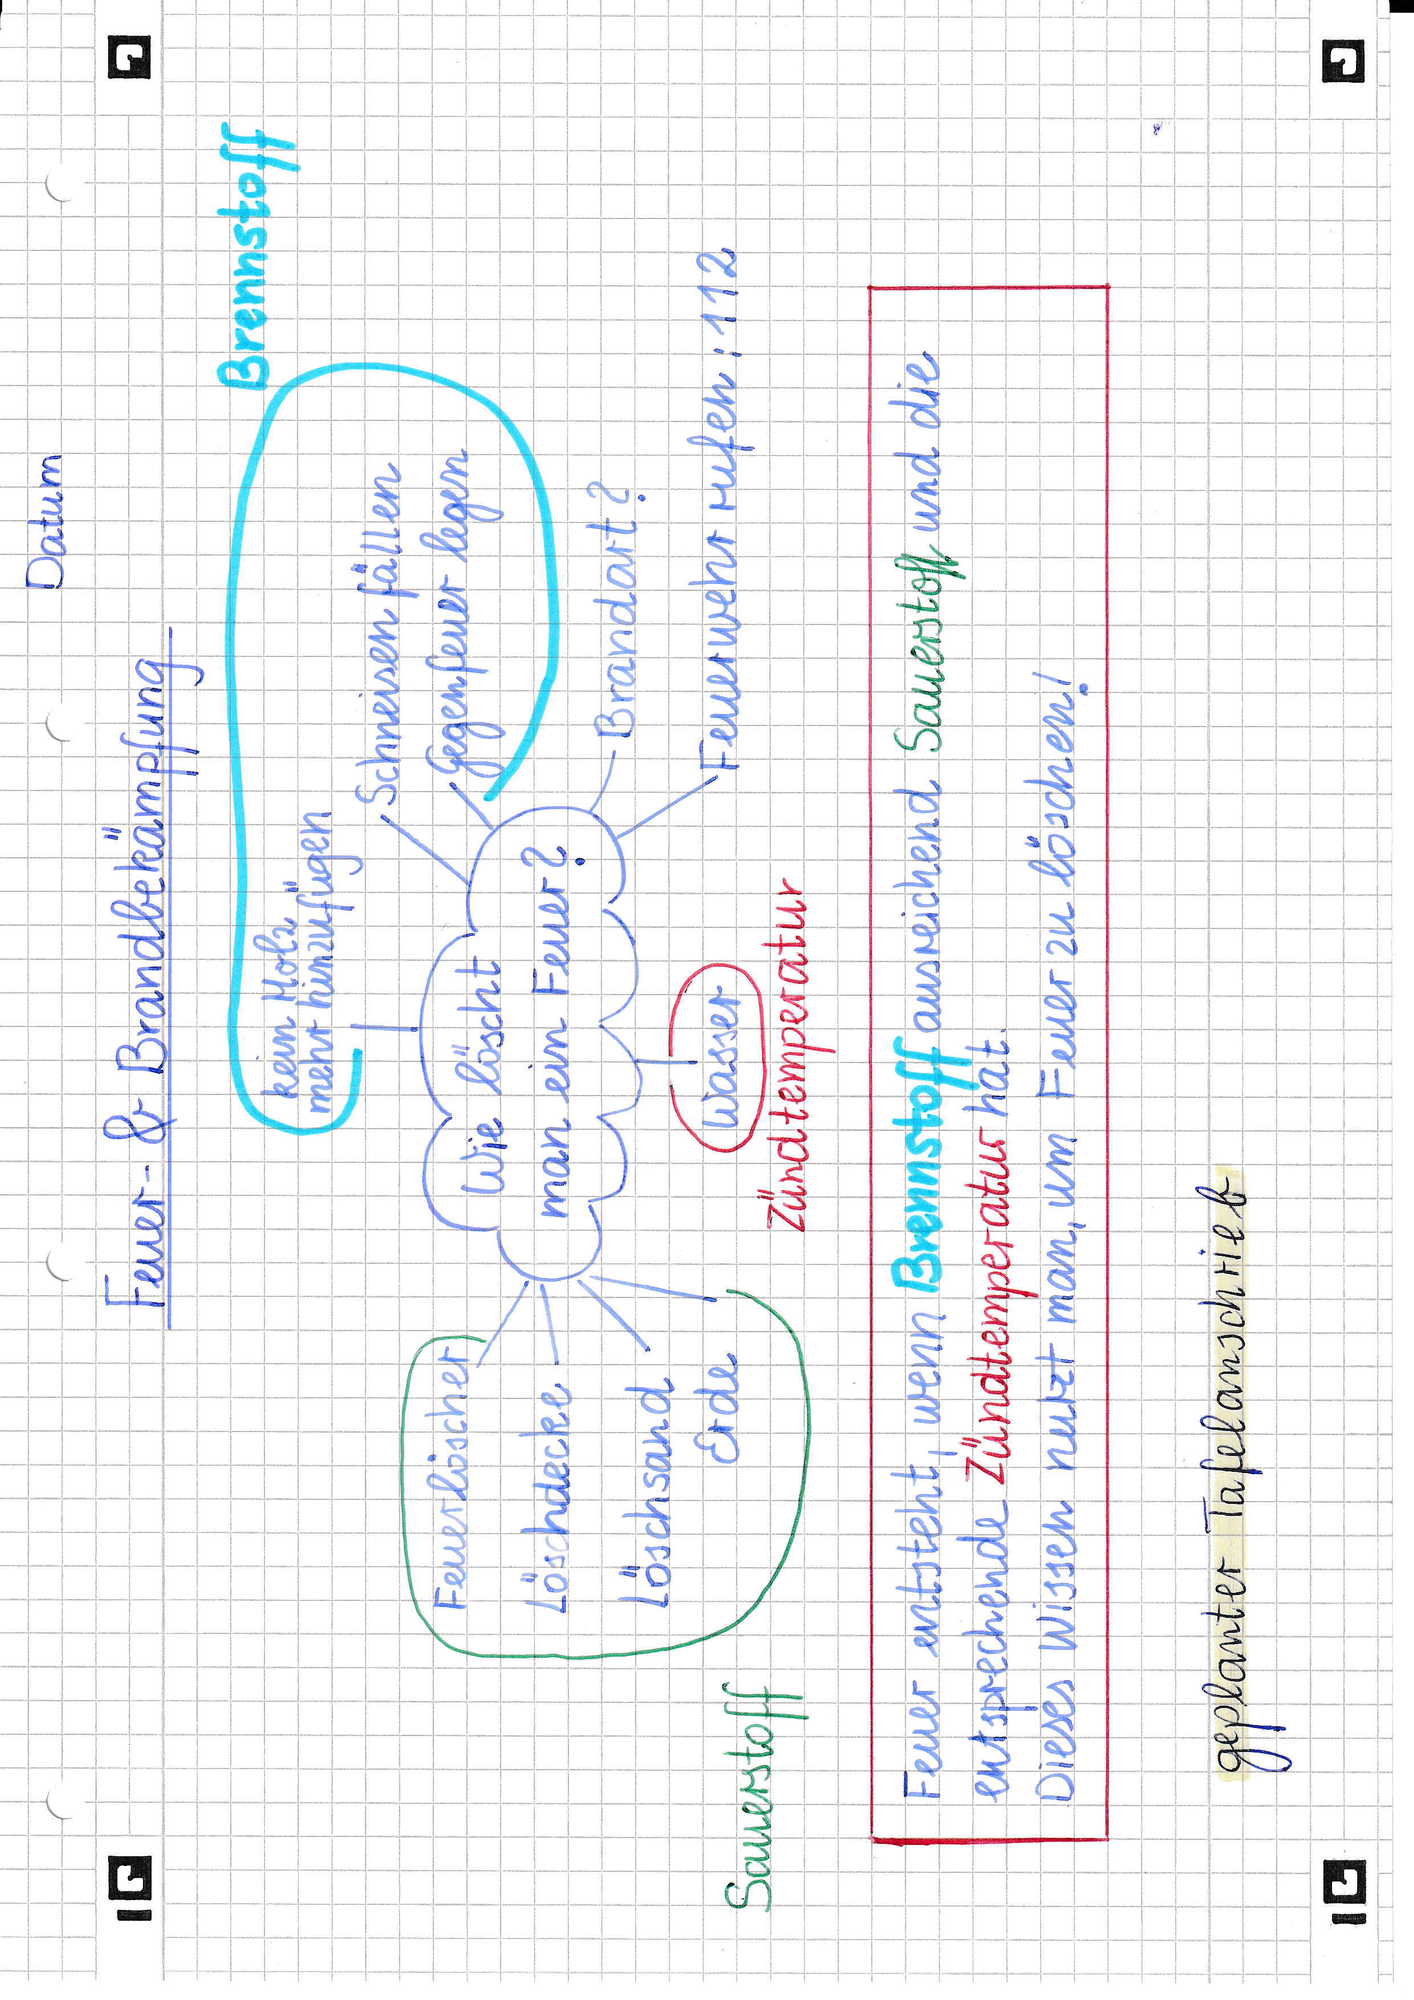 Datum
Feuer- & Brandbekämpfung
Brennstoff
kein Holz
mehr hinzufügen
Schneisen fällen
Gegenfeuer legen
Brandart?
Feuerwehr rufen: 112
Wie löscht
man ein Feuer?
Feuerlöscher
Löschdecke
Löschsand
Erde
Sauerstoff
Wasser
Zündtemperatur
Feuer entsteht, wenn Brennstoff ausreichend Sauerstoff und die
entsprechende Zündtemperatur hat.
Dieses Wissen nutzt man, um Feuer zu löschen!
geplanter Tafelanschrieb